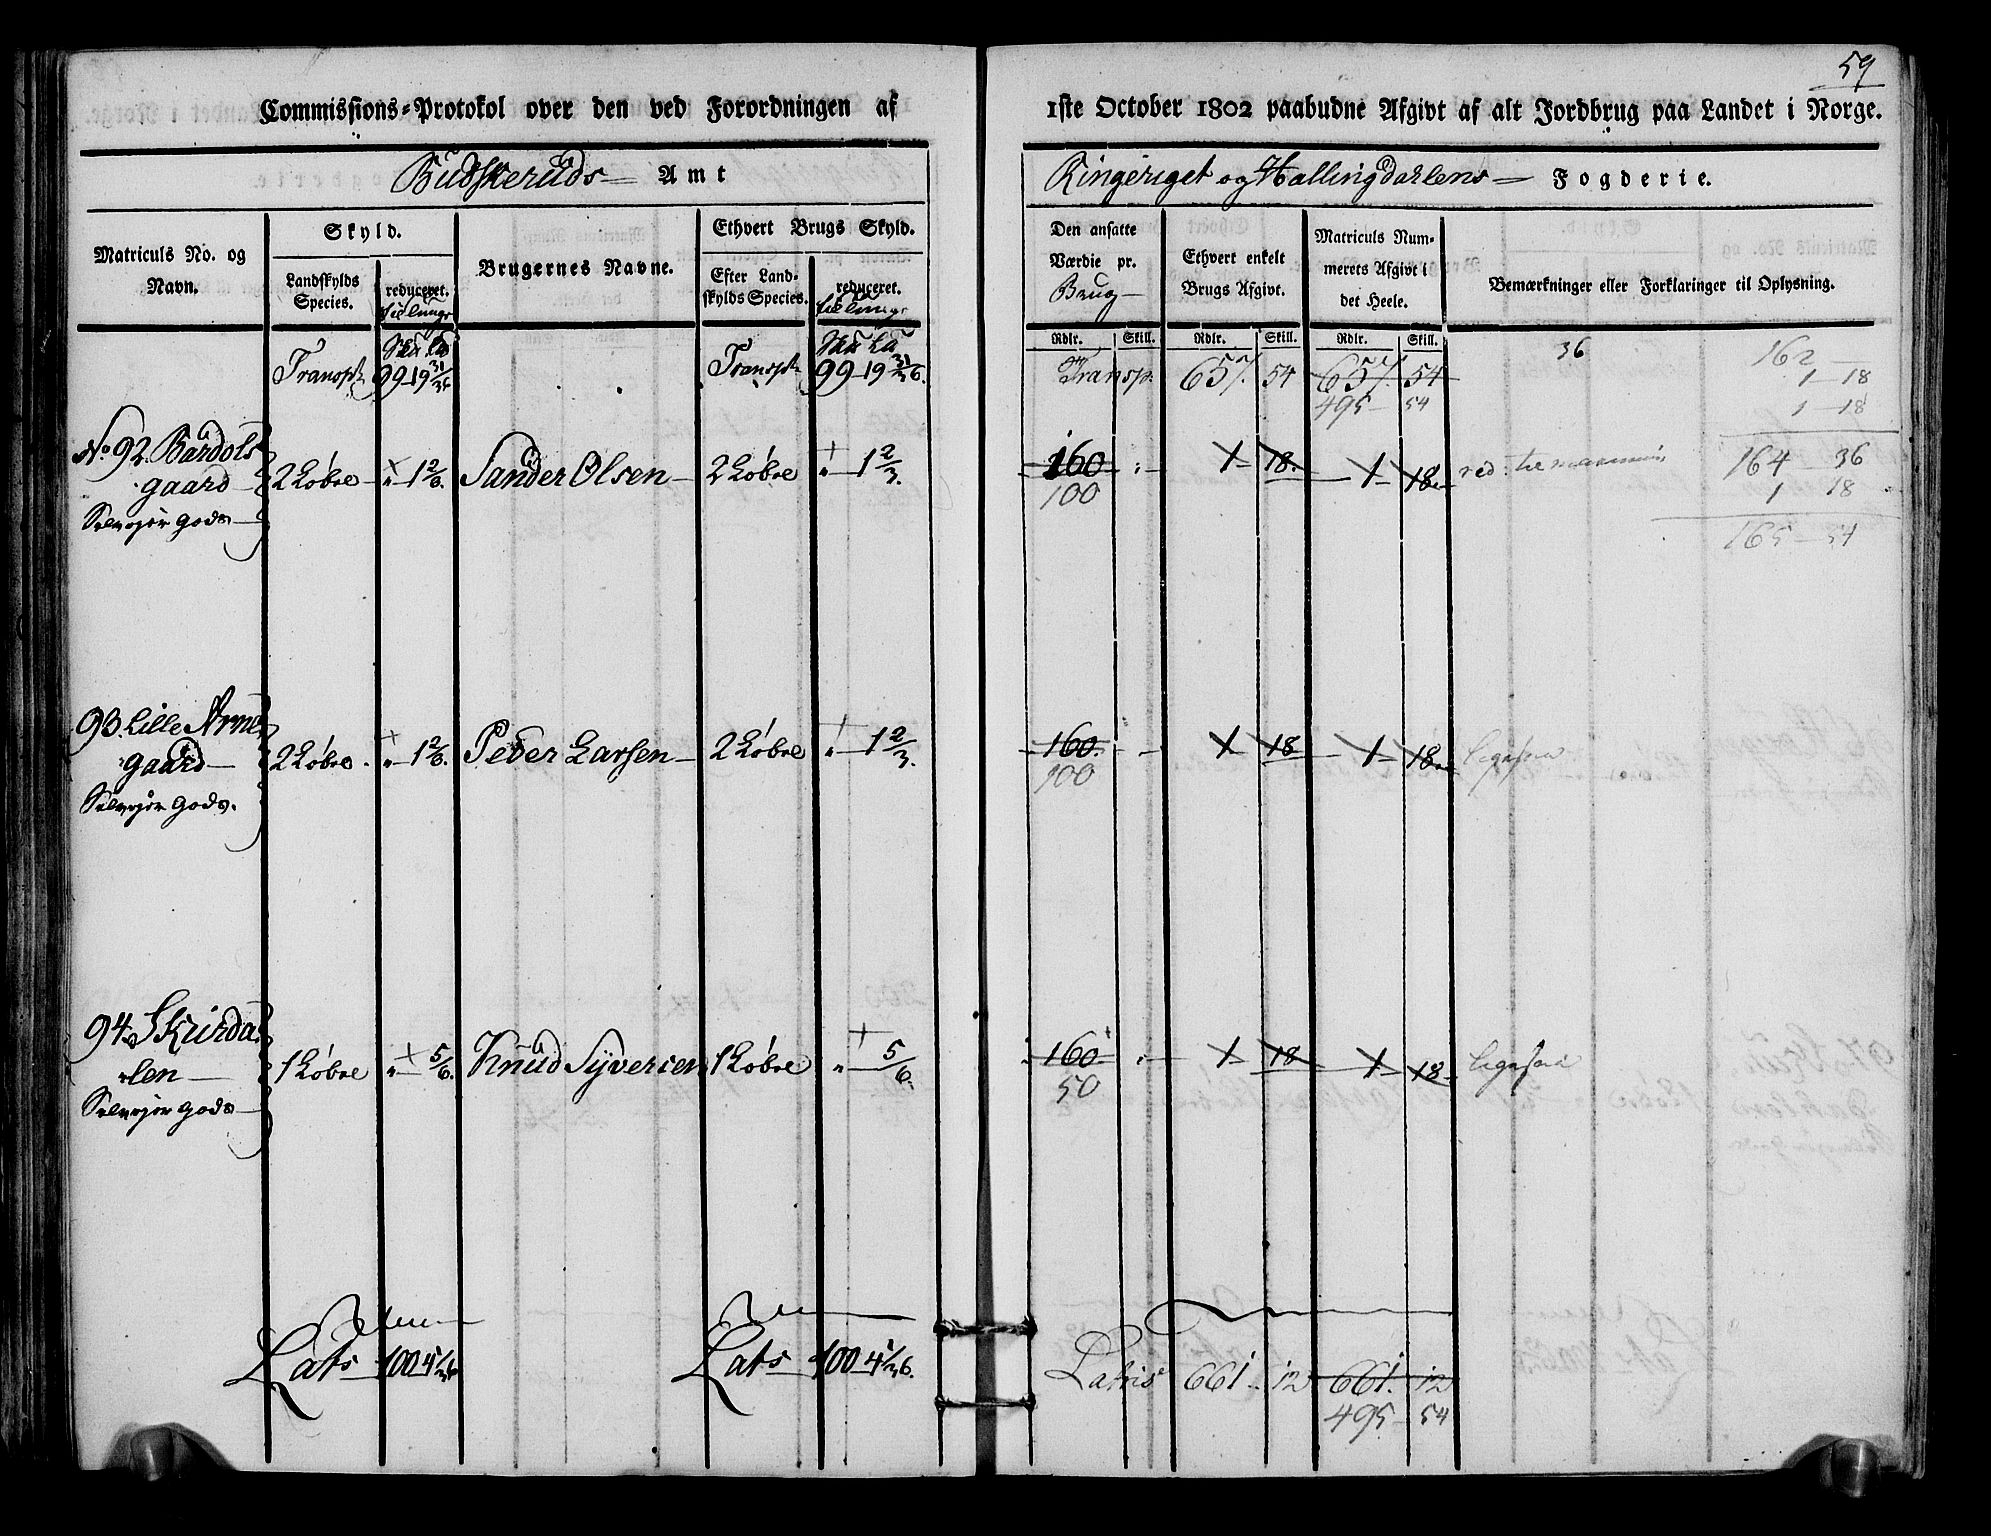 59
Commissions-Protokol over den ved Forordningen af 1ste October 1802 paabudne Afgivt af alt Jordbrug paa Landet i Norge.
Budskeruds Amt
Ringeriget og Hallingdahlens Fogderie.
Matriculs No. og Navn.
Skyld.
Landskylds Species.
reduceret.
Brugernes Navne.
Ethvert Brugs Skyld.
Efter Landskylds Species.
reduceret.
Den ansatte Værdie pr. Brug
Ethvert enkelt Brugs Afgivt.
Matriculs Nummerets Afgivt i det Heele.
Bemærkninger eller Forklaringer til Oplysning.
Rdlr. Skill. Rdlr. Skill. Rdlr. Skill.
Transpt 99 19 31/36 Transpt 99 19 31/36. Transp. 657. 54 657 54
495 54
36
162 —
1 — 18
1 — 18
164 36
1 18
165 — 54
No. 92. Bardols
gaard 2 Løbve " 1 2/3. Sander Olsen 2 Løbve " 1 2/3. 160 " 1 18. 1 18.
100
Selvejer Gods
93. Lille Arne
gaard 2 Løbve " 1 2/3. Peder Larsen 2 Løbve " 1 2/3. 160. 1 18 1 18. ligesaa
100
Selvejer Gods.
94. Skurda
len 1 Løbve " 5/6. Knud Syversen 1 Løbve " 5/6. 160 " 1 18 1 18. ligesaa
50
Selvejer Gods
Lats 100 4 1/36 Lats 100 4 1/36. Latris 661. 12 661. 12
495 — 54